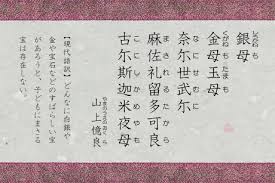 しろかねも
銀母
くがねも たまも
金母玉母
なにせむに
奈尓世武尓
まされるたから
麻佐礼留多可良
こにしかめやも
古尓斯迦米夜母
やまのうえのおくら
山上憶良
【現代語訳】どんなに白銀や
金や宝石などのすばらしい宝
があろうと、子どもにまさる
宝は存在しない。